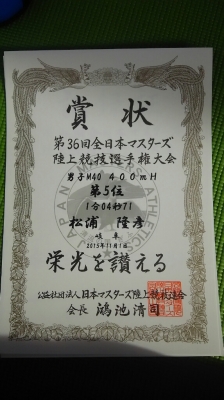 賞状
第36回全日本マスターズ
陸上競技選手権大会
男子M40 400mH
第5位
1分04秒71
松浦 隆彦
岐阜
2015年11月1日
栄光を讃える
公益社団法人日本マスターズ陸上競技連合
会長 鴻池清司